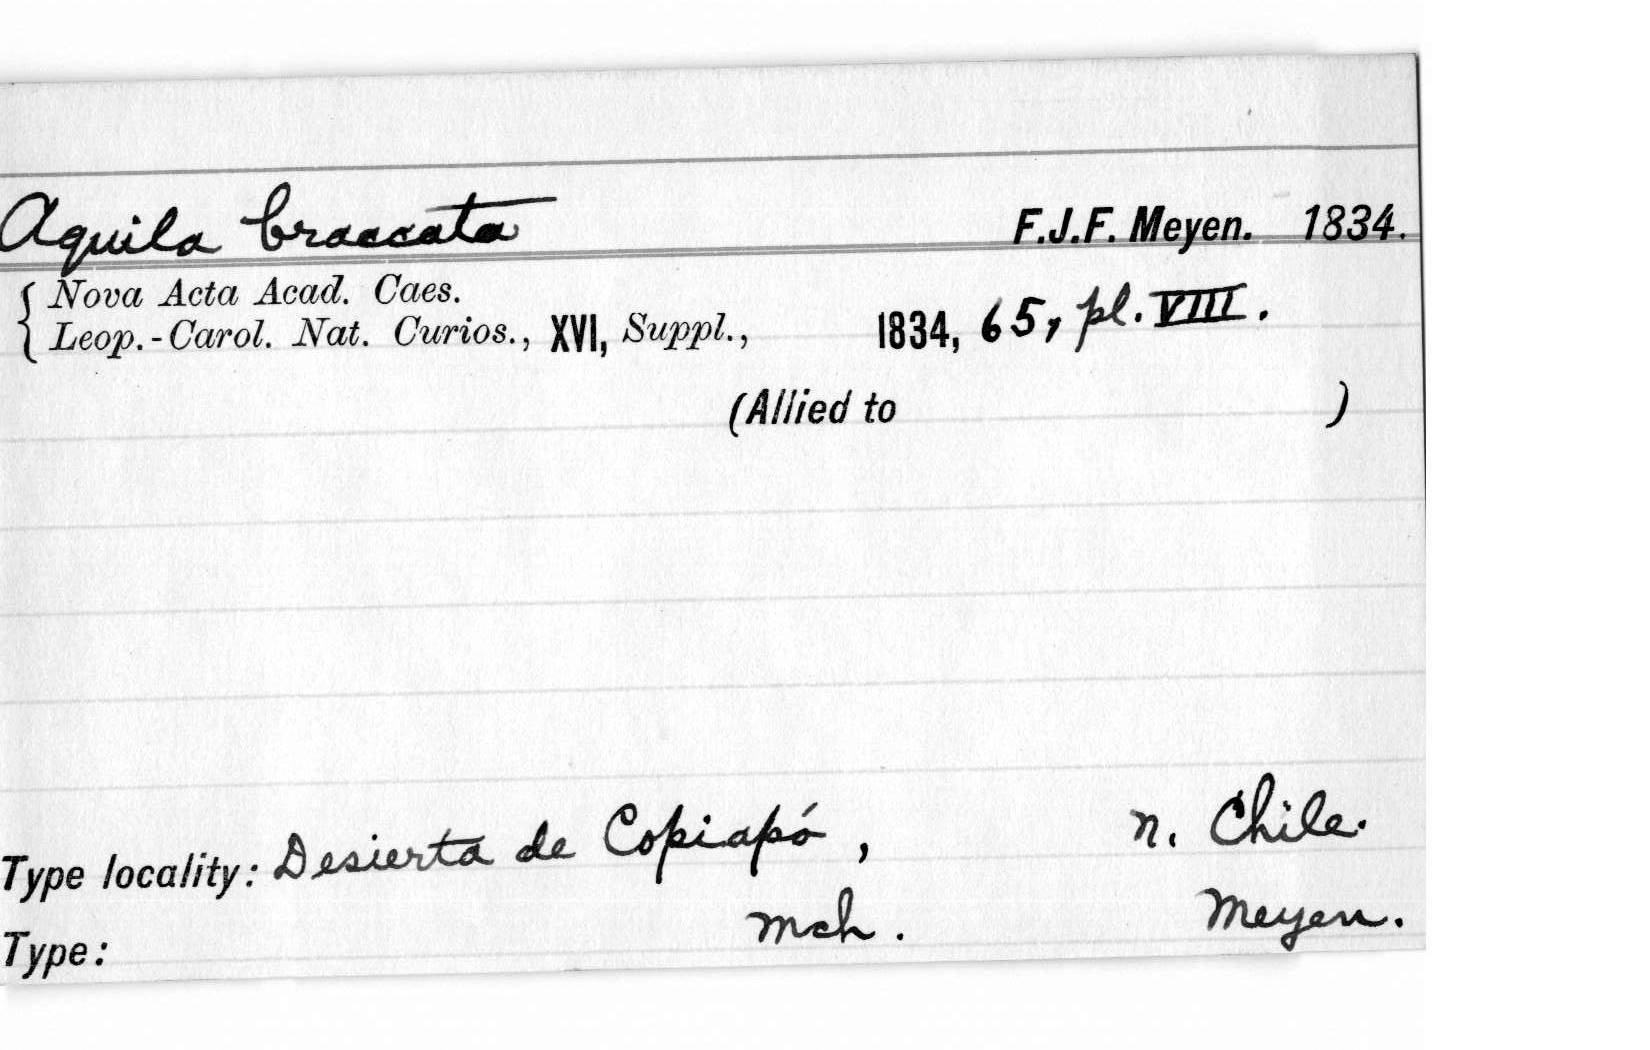 Aquila braccata F.J.F. Meyen. 1834.
Nova Acta Acad. Caes.
Leop.-Carol. Nat. Curios., XVI, Suppl., 1834, 65, pl. VIII.
(Allied to )
Type locality: Desierta de Copiapó, n. Chile.
Type: Mch. Meyen.